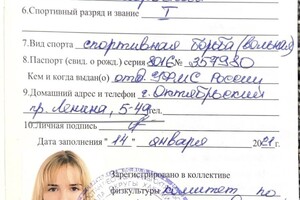 6.Спортивный разряд и звание I
7.Вид спорта спортивная борьба (вольная)
8.Паспорт (свид. о рожд.) серия 8016 № 357980
Кем и когда выдан(о) отд. УФМС России
9.Домашний адрес и телефон г. Октябрьский
пр. Ленина, 5-49 тел.
10.Личная подпись
Дата заполнения "14" января 2021
Зарегистрировано в коллективе
физкультуры комитет по